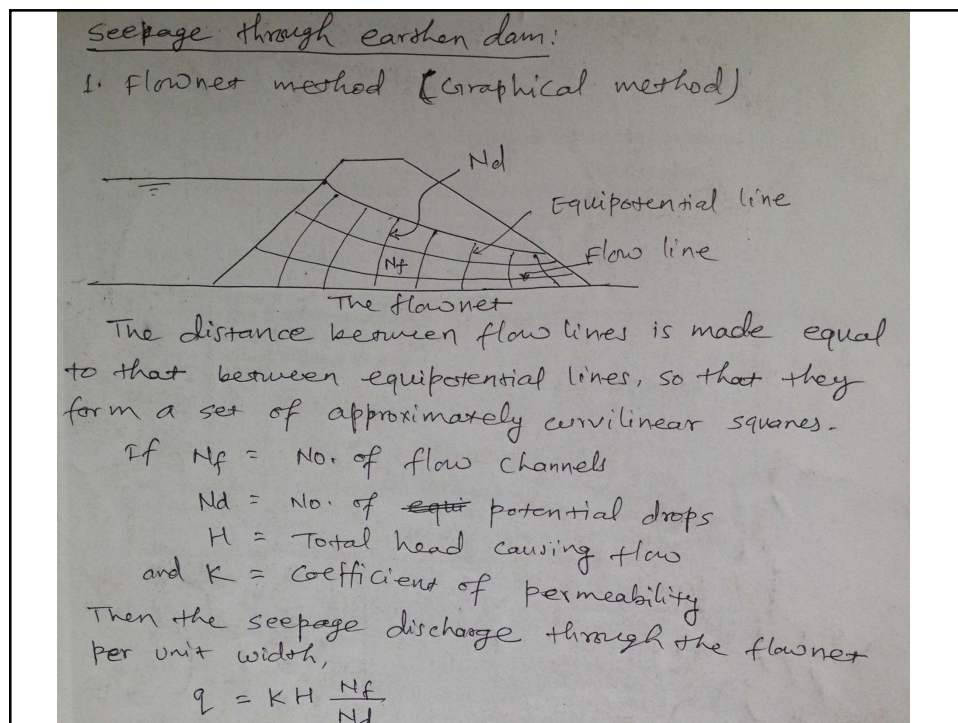 Seepage through earthen dam:
1. Flownet method (Graphical method)
Nd
Equipotential line
Flow line
Nf
The flownet
The distance between flow lines is made equal
to that between equipotential lines, so that they
form a set of approximately curvilinear squares.
If Nf = No. of flow channels
Nd = No. of equi potential drops
H = Total head causing flow
and K = Coefficient of permeability
Then the seepage discharge through the flownet
per unit width,
q = KH Nf/Nd